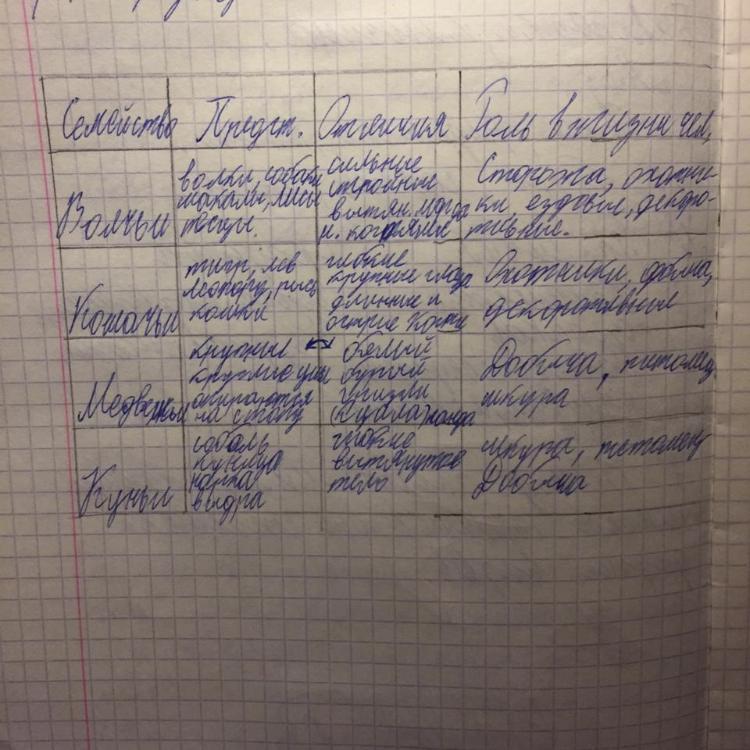 Семейство Предст. Отличия Роль в жизни чел.
Волчьи
волки, собаки
шакалы, лисы
песцы.
сильные
стройные
вытян. морда
Сторожа, охотни-
ки, ездовые, декора-
тивные.
Кошачьи
тигр, лев
леопард, рысь
кошки
гибкие
крупные глаза
длинные и
острые когти
Охотники, добыча,
декоративные
Медвежьи
крупные ↔
круглые уши
опираются
на стопу
белый
бурый
гризли
панда
Добыча, питомец
шкура
Куньи
соболь
куница
норка
выдра
гибкие
вытянутое
тело
шкура, питомец
Добыча